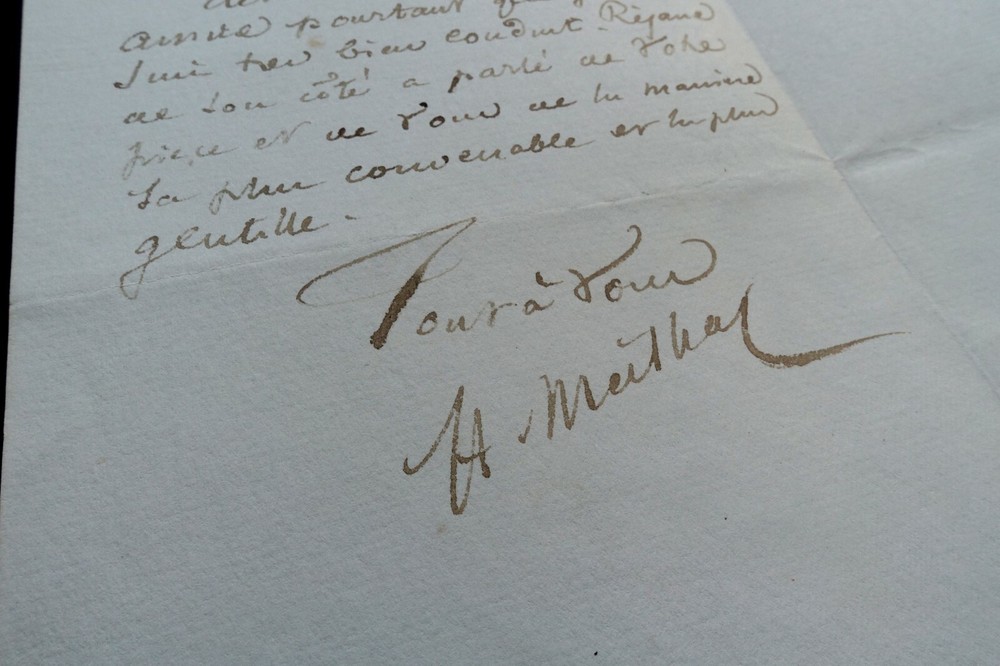 amité pourtant
suis très bien conduit. Réjane
de son côté a parlé de votre
pièce et de vous de la manière
la plus convenable et la plus
gentille.
Tout à vous
H. Meilhac